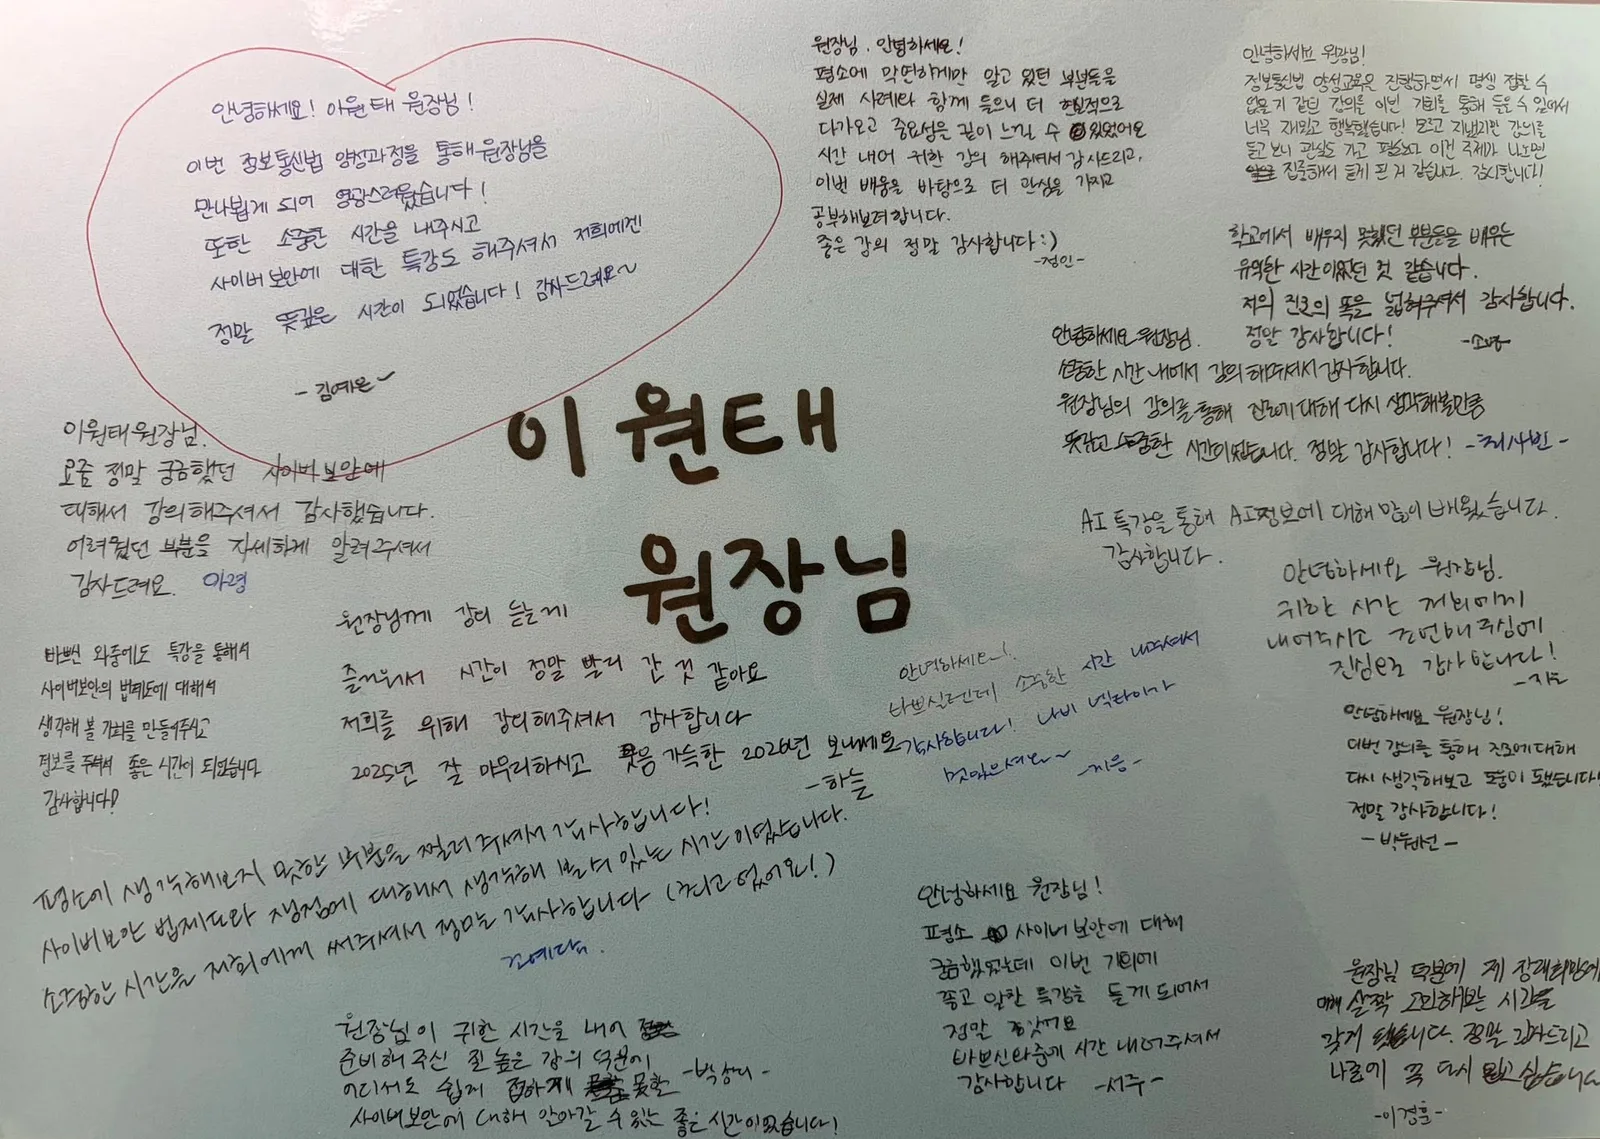 안녕하세요! 이원태 원장님!
이번 정보통신법 양성과정을 통해 원장님을
만나뵙게 되어 영광스러웠습니다!
또한 소중한 시간을 내주시고
사이버보안에 대한 특강도 해주셔서 저희에겐
정말 뜻깊은 시간이 되었습니다! 감사드려요~
-김예은-
원장님, 안녕하세요!
평소에 막연하게만 알고 있던 부분들을
실제 사례와 함께 들으니 더 현실적으로
다가오고 중요성을 깊이 느낄 수 있었어요
시간 내어 귀한 강의 해주셔서 감사드리고,
이번 배움을 바탕으로 더 관심을 가지고
공부해보려합니다.
좋은 강의 정말 감사합니다:)
-정인-
안녕하세요 원장님!
정보통신법 양성교육은 진행하면서 평생 접할 수
없을 지 같던 강의를 이번 기회를 통해 들을 수 있어서
너무 재밌고 행복했습니다! 모르고 지냈지만 강의를
듣고 보니 관심도 가고 평소보다 이런 주제가 나오면
집중해서 듣게 된 거 같습니다. 감사합니다!
학교에서 배우지 못했던 부분들을 배우는
유익한 시간이었던 것 같습니다.
저의 진로의 폭을 넓혀주셔서 감사합니다.
정말 감사합니다!
안녕하세요 원장님.
소중한 시간 내어서 강의 해주셔서 감사합니다.
원장님의 강의를 통해 진로에 대해 다시 생각해볼만큼
뜻깊고 소중한 시간이었습니다. 정말 감사합니다! -최사빈-
이원태 원장님
이원태원장님.
요즘 정말 궁금했던 사이버보안에
대해서 강의해주셔서 감사했습니다.
어려웠던 부분을 자세하게 알려주셔서
감사드려요. 아령
AI 특강을 통해 AI정보에 대해 많이 배웠습니다.
감사합니다.
안녕하세요 원장님.
귀한 시간 저희에게
내어주시고 강연해주심에
진심으로 감사합니다!
바쁘신 와중에도 특강을 통해서
사이버보안의 법제도에 대해서
생각해 볼 기회를 만들어주시고
정보를 주셔서 좋은 시간이 되었습니다
감사합니다!
원장님께 강의 듣는게
즐거워서 시간이 정말 빨리 간 것 같아요
저희를 위해 강의해주셔서 감사합니다
2025년 잘 마무리하시고 웃음 가득한 2026년 보내세요
-하늘
안녕하세요!
바쁘실텐데 소중한 시간 내주셔서
감사합니다! 나비 넥타이가
멋있으셔요~ -지응-
안녕하세요 원장님!
이번 강의를 통해 진로에 대해
다시 생각해보고 도움이 됐습니다!
정말 감사합니다!
평소에 생각해보지 못한 부분을 찔러주셔서 감사합니다!
사이버보안 법제도와 쟁점에 대해서 생각해 볼 수 있는 시간이었습니다.
소중한 시간을 저희에게 써주셔서 정말 감사합니다
고예담.
안녕하세요 원장님!
평소 사이버보안에 대해
궁금했었는데 이번 기회에
좋고 알찬 특강을 듣게 되어서
정말
바쁘신와중에 시간 내어주셔서
감사합니다 -서주-
원장님이 귀한 시간을 내어
준비해 주신 질 높은 강의 덕분에
어디서도 쉽게 접하게 못할 -박상미-
사이버보안에 대해 알아갈 수 있는 좋은 시간이었습니다!
원장님 덕분에 제 장래희망에
대해 살짝 고민해보는 시간을
갖게 됐습니다. 정말 감사드리고
나중에 꼭 다시 뵙고 싶습니다
-이경훈-